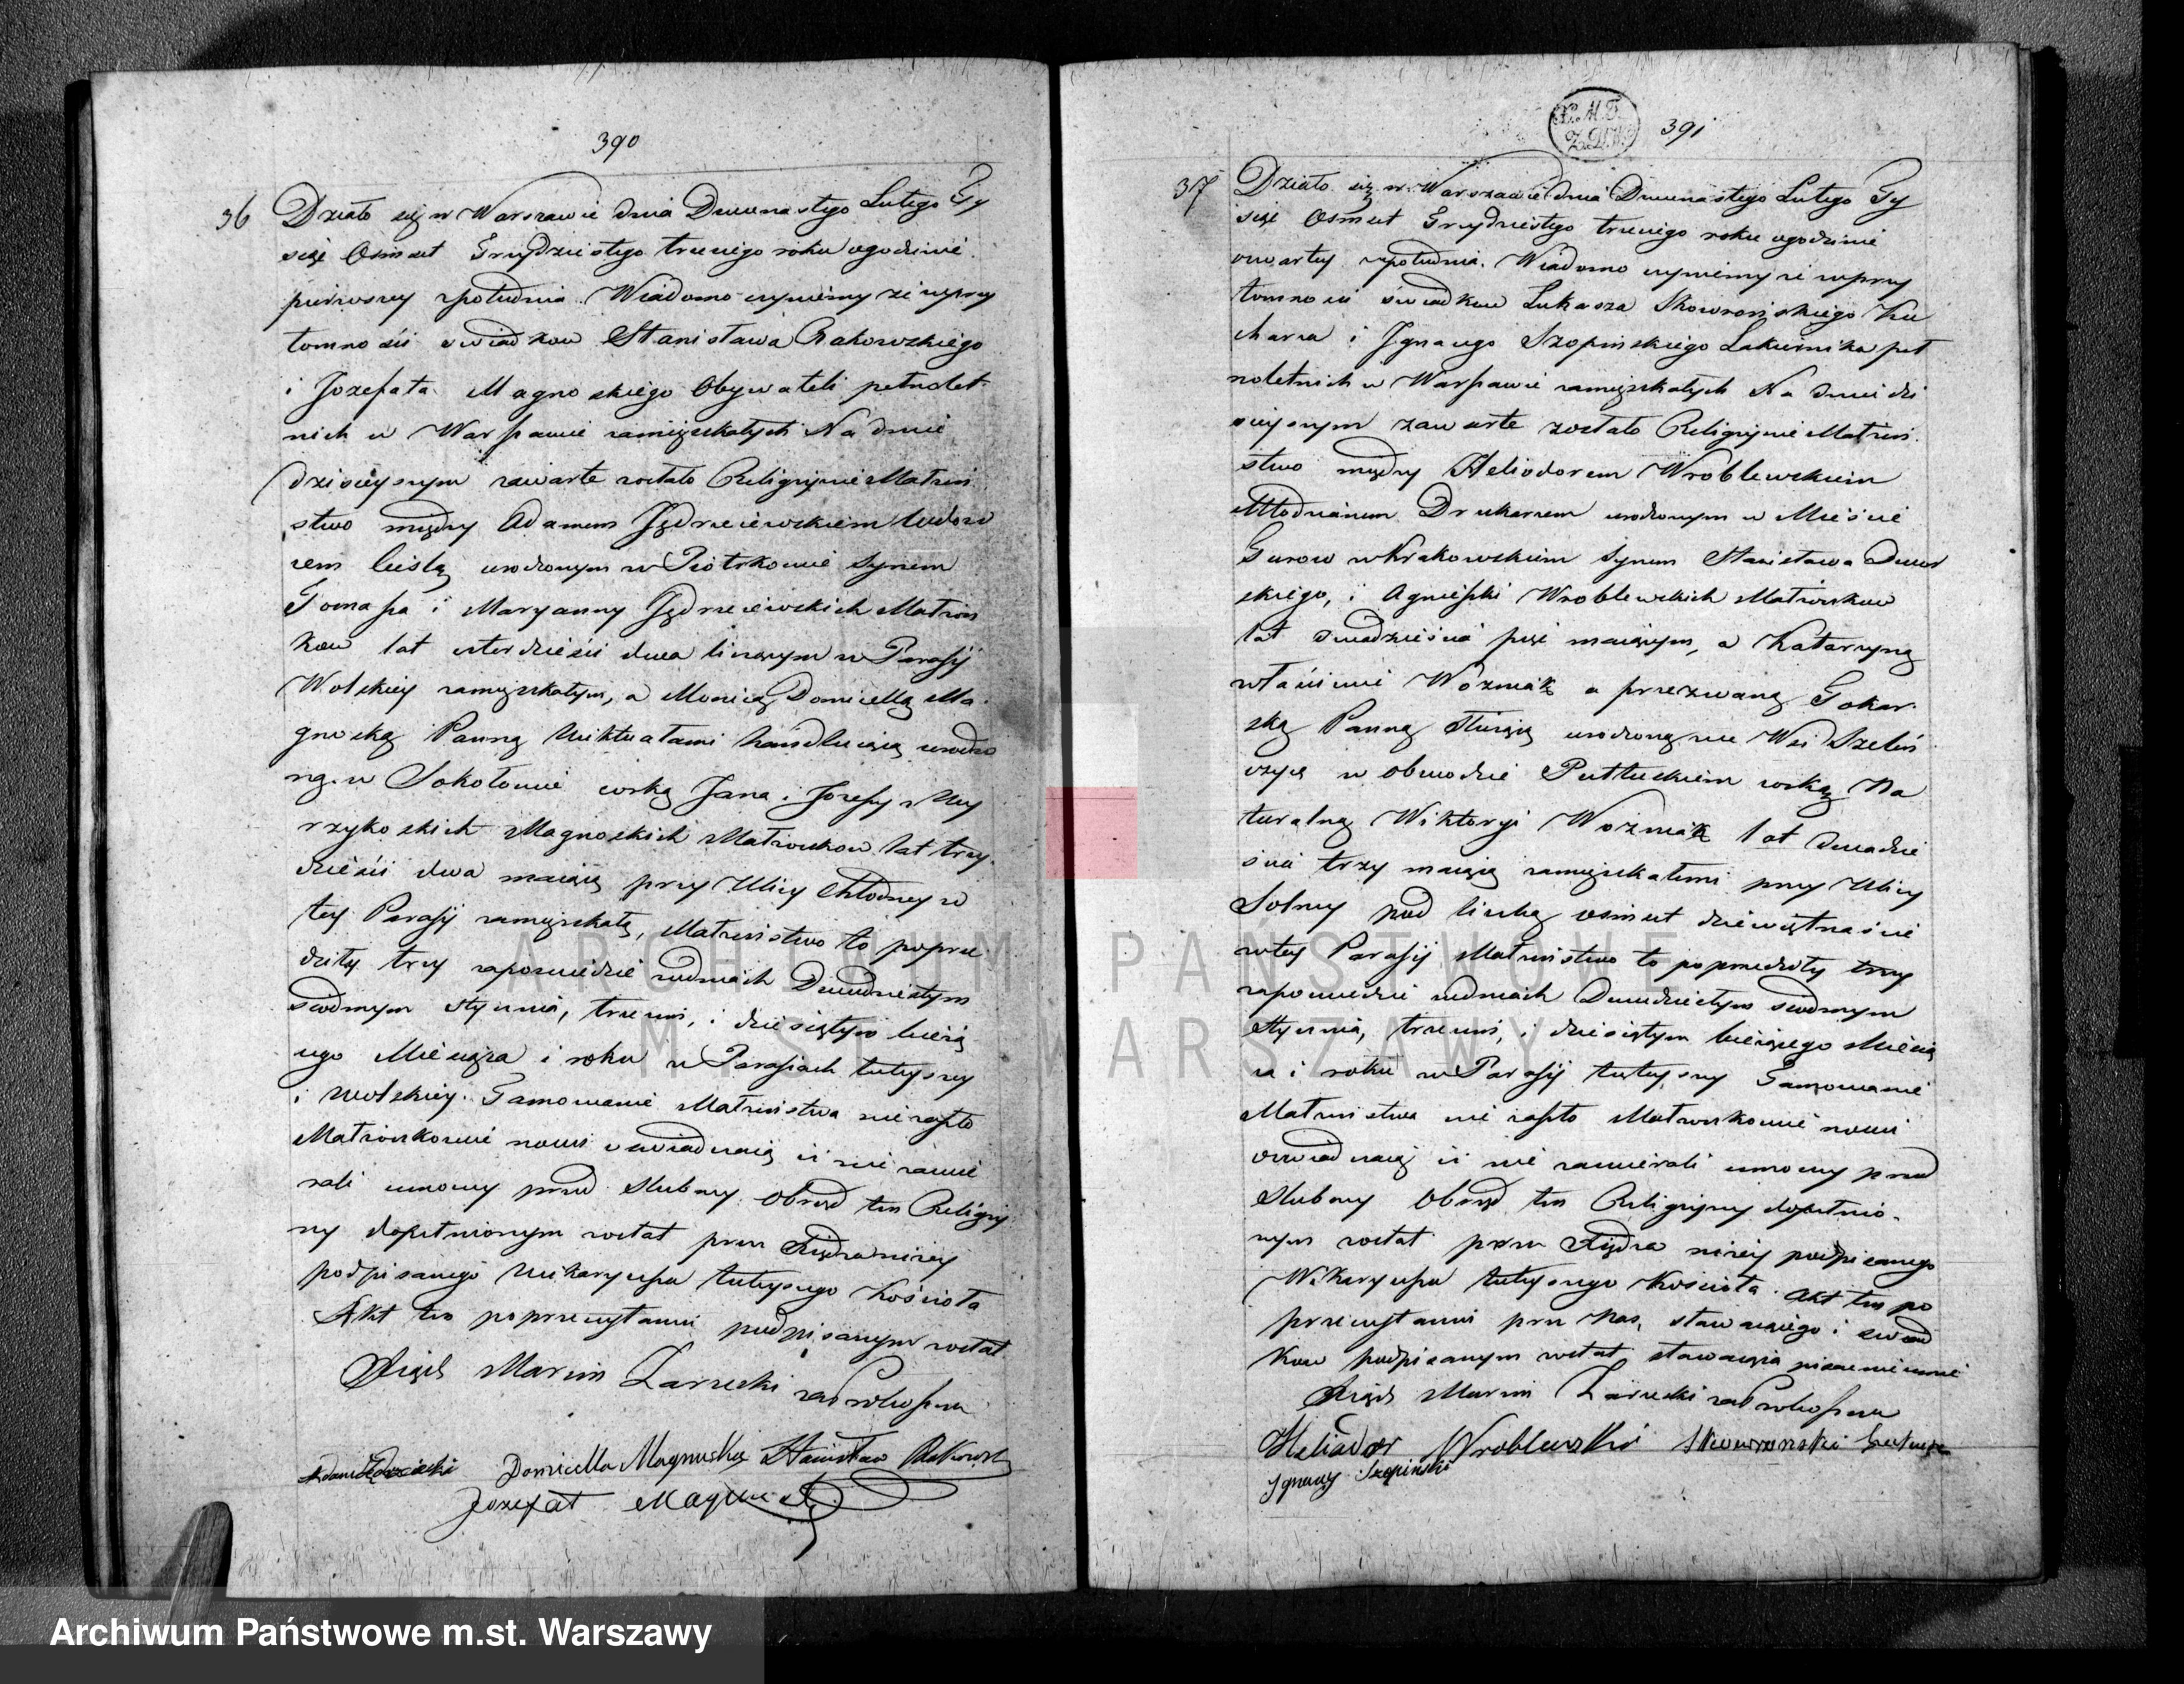 390
36
Działo się w Warszawie dnia Dwunastego Lutego Ty
siąc Osmset Trzydziestego trzeciego roku o godzinie
pierwszey z południa. Wiadomo czyniemy że w przy
tomności swiadkow Stanisława Rakowskiego
i Jozefata Magnoskiego Obywateli pełnolet
nich w Warszawie zamięszkałych Na dniu
dzisieyszym zawarte zostało Religiynie Małżeń
stwo między Adamem Jędrzeiewskiem Wdow
cem Cieslą urodzonym w Piotrkowie synem
Tomasza i Maryanny Jędrzeiewskich Małżon
kow lat czterdzieści dwa liczącym w Parafij
Wolskiey zamięszkałym, a Monicą Domicellą Ma
gnoską Panną Wiktuałami handluiącą urodzo
ną w Sokołowie corką Jana i Jozefy z
rzykoskich Magnoskich Małżonkow lat trzy
dzieści dwa maiącą przy Ulicy Chłodney w
tey Parafij zamięszkałą, Małżeństwo to poprze
dziły trzy zapowiedzie w dniach Dwudziestym
siodmym stycznia, trzecim, i dziesiątym bieżą
cego Miesiąca i roku w Parafiach tuteyszey
i Wolskiey. Tamowanie Małżeństwa nie zaszło
Małżonkowie nowi oswiadczaią iż nie zawie
rali umowy przed slubney. Obrząd ten Religiy
ny dopełnionym został przez Xiędza niżey
podpisanego Wikaryusza tuteyszego Kościoła
Akt ten po przeczytaniu podpisanym został
Xiądz Marcin Zarzecki za Proboszcza
Domicella Magnuska Stanisław Rakowski
Jozefat
391
37
Działo się w Warszawie dnia Dwunastego Lutego Ty
siąc Osmset Trzydziestego trzeciego roku o godzinie
czwartey z południa. Wiadomo czyniemy że w przy
tomności swiadkow Łukasza Skowrońskiego Ku
charza i Ignacego Szopinskiego Lakiernika peł
noletnich w Warszawie zamięszkałych Na dniu dzi
sieyszym zawarte zostało Religiynie Małżeń
stwo między Heliodorem Wroblewskiem
Młodzianem Drukarzem urodzonym w Mieście
w Krakowskiem synem Stanisława Dwor
skiego, i Agnieszki Wroblewskich Małżonkow
lat dwadzieścia pięć maiącym, a Katarzyną
właściwie Wozniak a przezwaną Tokar
ską Panną Służącą urodzoną we Wsi
w obwodzie Pułtuskiem corką Na
turalną Wiktoryi Wozniak lat dwadzie
ścia trzy maiącą zamięszkałemi przy Ulicy
Solney pod liczbą osmset dziewiętnaście
w tey Parafij Małżeństwo to poprzedziły trzy
zapowiedzie w dniach Dwudziestym siodmym
stycznia, trzecim, i dziesiątym bieżącego Miesią
ca i roku w Parafij tuteyszey Tamowanie
Małżeństwa nie zaszło Małżonkowie nowi
oswiadczaią iż nie zawierali umowy przed
slubney Obrząd ten Religiyny dopełnio
nym został przez Xiędza niżey podpisanego
Wikaryusza tuteyszego Kościoła. Akt ten po
przeczytaniu przez Nas, stawaiącego i swiad
kow podpisanym został stawaiąca pisać nie umie
Xiądz Marcin Zarzecki za Proboszcza
Heliodor Wroblewski Skowronski
Ignacy Szopinski
ARCHIWUM PAŃSTWOWE
M.ST. WARSZAWY
Archiwum Państwowe m.st. Warszawy